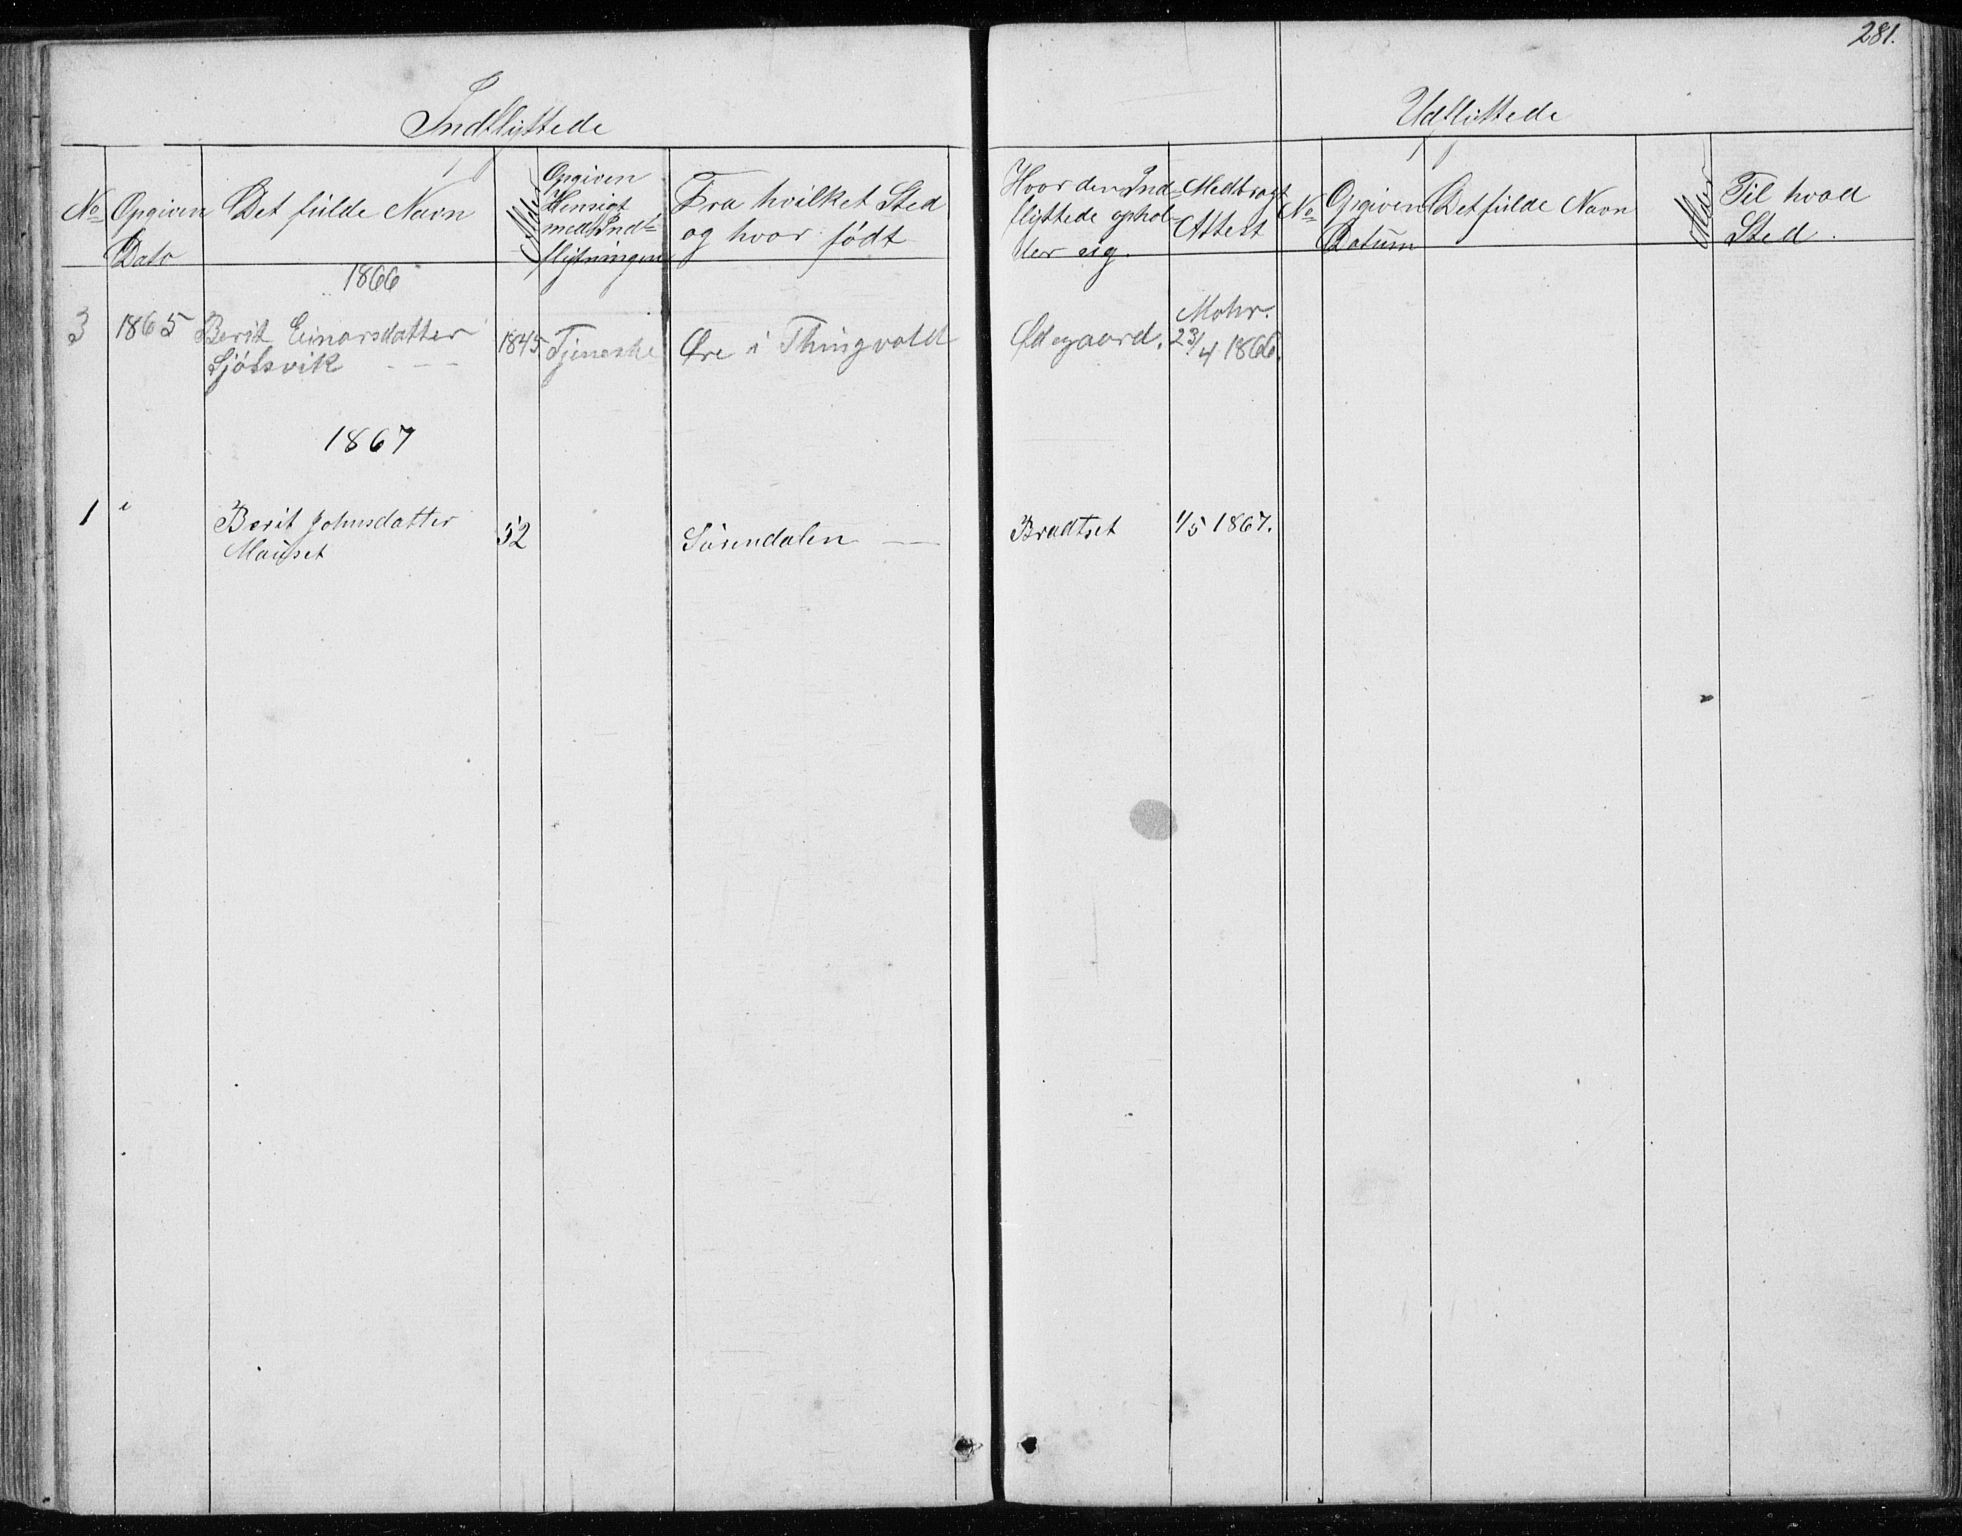 281.
Indflyttede
Udflyttede
No Opgiven Dato
Det fulde Navn
Alder
Opgiven Hensigt med Indflytningen
Fra hvilket Sted og hvor født
Hvor den Indflyttede opholder sig.
Medbragt Attest
No
Opgiven Datum
Det fulde Navn
Alder
Til hvad Sted.
1866
3 1865 Berit Einarsdatter Sjølsvik 1845 Tjeneste Øre i Thingvold Ødegaard. Mohr. 23/4 1866.
1867
1 " Berit Johnsdatter Mauset 52 Surendalen — Bradtset 1/5 1867.